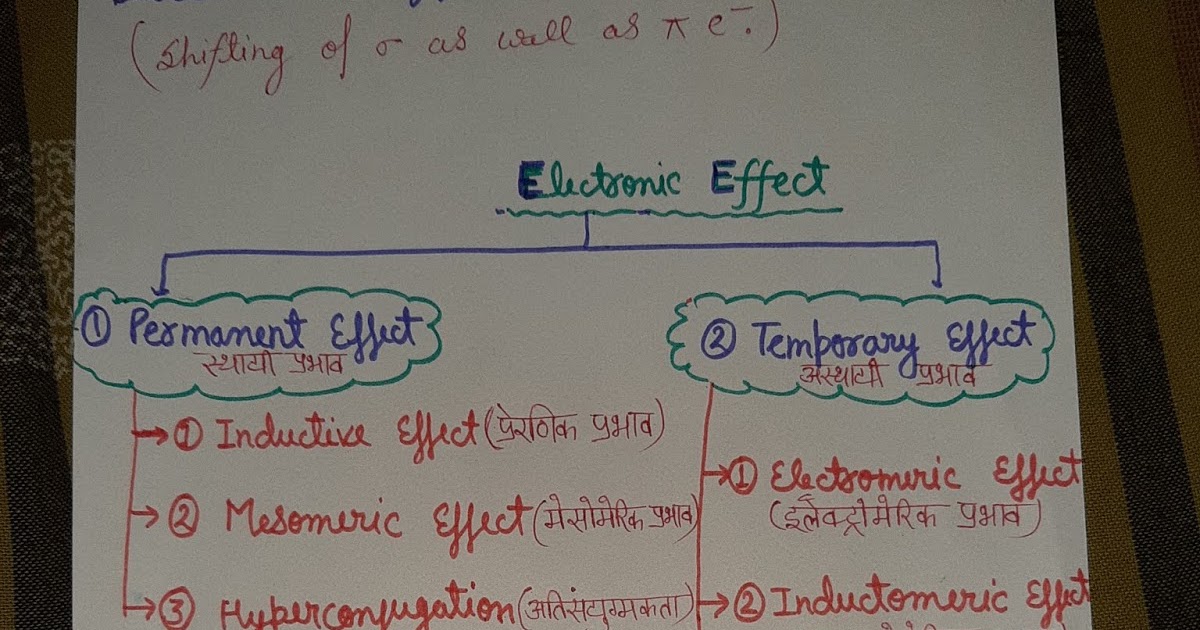 (Shifting of σ as well as π e⁻.)
Electronic Effect
① Permanent Effect
स्थायी प्रभाव
② Temporary Effect
अस्थायी प्रभाव
→ ① Inductive Effect (प्रेरणिक प्रभाव)
→ ② Mesomeric Effect (मेसोमेरिक प्रभाव)
→ ③ Hyperconjugation (अतिसंयुग्मकता)
→ ① Electromeric Effect
(इलैक्ट्रोमेरिक प्रभाव)
→ ② Inductomeric Effect